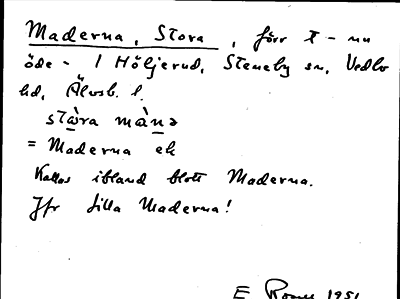 Maderna, Stora, förr t - nu
öde - I Höljerud, Steneby sn, Vedbo
hd, Älvsb. l.
= Maderna ek
Kallas ibland blott Maderna.
Jfr Lilla Maderna!
E 1951